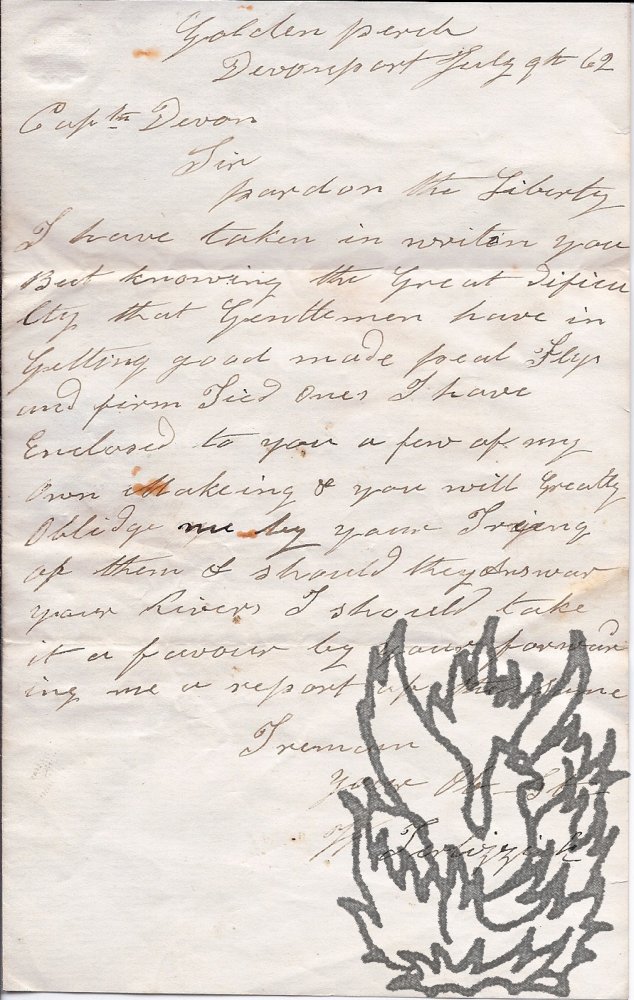 Golden perch
Devonport July 9th 62
Captn Devon
Sir
pardon the Liberty
I have taken in writin you
But knowing the Great dificu
lty that Gentlemen have in
Getting good made peal Flys
and firm Tied ones I have
Enclosed to you a few of my
own Makeing & you will Greatly
Oblidge me by your Trying
of them & should they answar
your Rivers I should take
it a favour by your forward
ing me a report of the same
I remain
your Ob
W